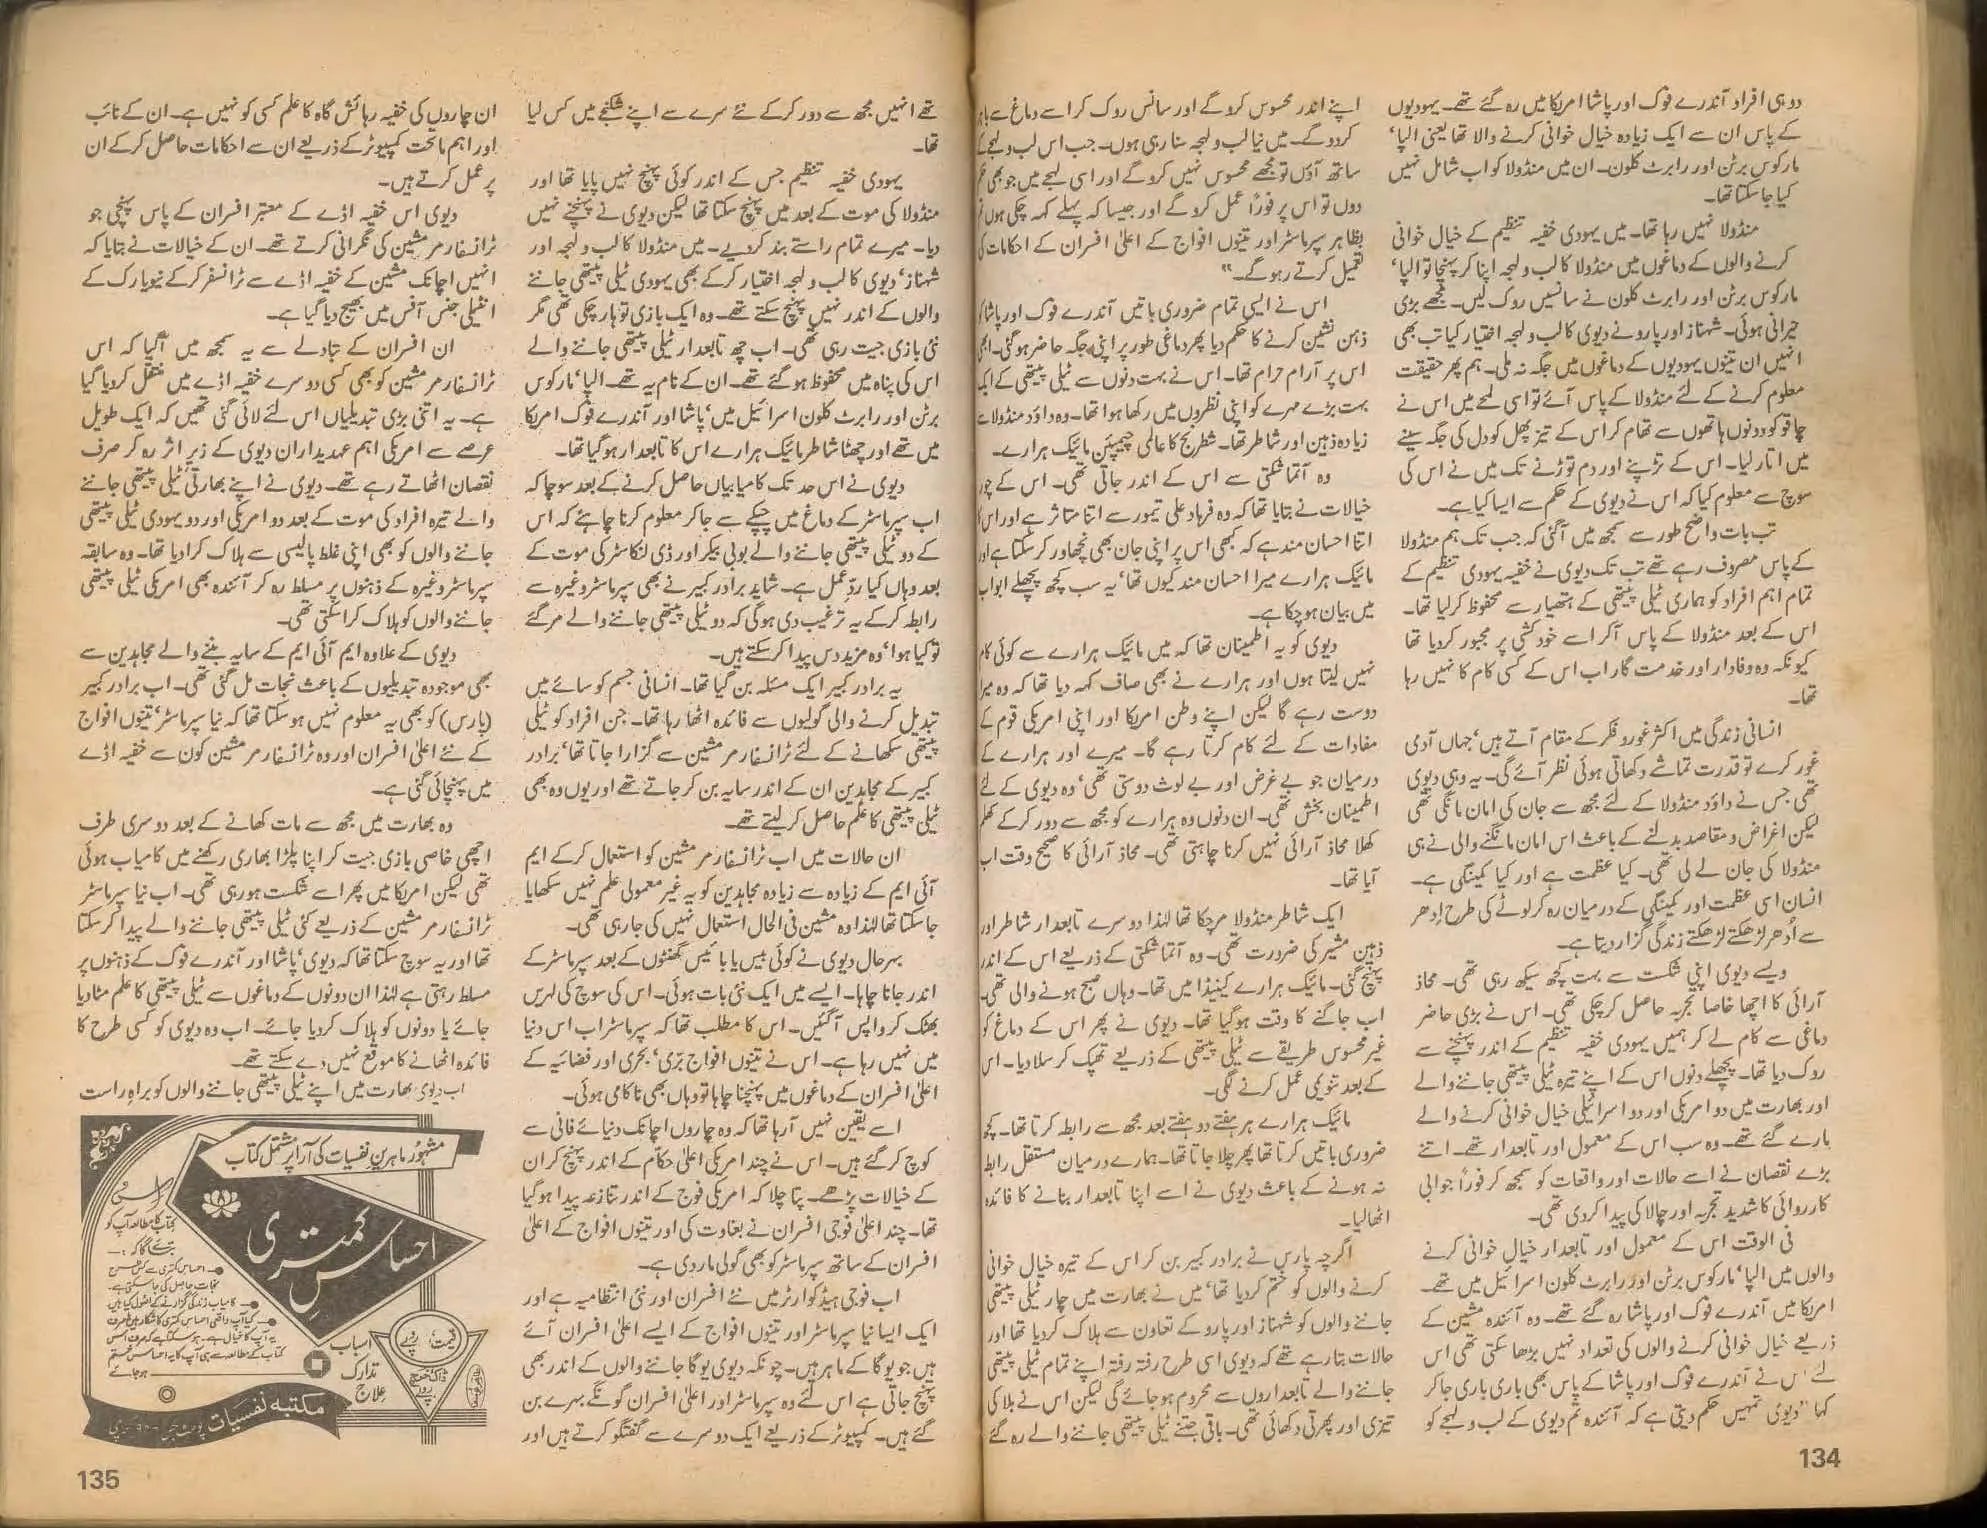 دو ہی افراد آندرے فوک اور پاشا امریکا میں رہ گئے تھے۔ یہودیوں
کے پاس ان سے ایک زیادہ خیال خوانی کرنے والا تھا یعنی الپا‘
مارکوس برٹن اور رابرٹ کلون۔ ان میں منڈولا کو اب شامل نہیں
کیا جا سکتا تھا۔
منڈولا نہیں رہا تھا۔ میں یہودی خفیہ تنظیم کے خیال خوانی
کرنے والوں کے دماغوں میں منڈولا کا لب و لہجہ اپنا کر پہنچا تو الپا‘
مارکوس برٹن اور رابرٹ کلون نے سانسیں روک لیں۔ مجھے بڑی
حیرانی ہوئی۔ شہناز اور پارو نے دیوی کا لب و لہجہ اختیار کیا تب بھی
انہیں ان تینوں یہودیوں کے دماغوں میں جگہ نہ ملی۔ ہم پھر حقیقت
معلوم کرنے کے لئے منڈولا کے پاس آئے تو اسی لمحے میں اس نے
چاقو کو دونوں ہاتھوں سے تھام کر اس کے تیز پھل کو دل کی جگہ سینے
میں اتار لیا۔ اس کے تڑپنے اور دم توڑنے تک میں نے اس کی
سوچ سے معلوم کیا کہ اس نے دیوی کے حکم سے ایسا کیا ہے۔
تب بات واضح طور سے سمجھ میں آگئی کہ جب تک ہم منڈولا
کے پاس مصروف رہے تھے تب تک دیوی نے خفیہ یہودی تنظیم کے
تمام اہم افراد کو ہماری ٹیلی پیتھی کے ہتھیار سے محفوظ کر لیا تھا۔
اس کے بعد منڈولا کے پاس آکر اسے خودکشی پر مجبور کر دیا تھا
کیونکہ وہ وفادار اور خدمت گار اب اس کے کسی کام کا نہیں رہا
تھا۔
انسانی زندگی میں اکثر غور و فکر کے مقام آتے ہیں‘ جہاں آدمی
غور کرے تو قدرت تماشے دکھاتی ہوئی نظر آئے گی۔ یہ وہی دیوی
تھی جس نے داؤد منڈولا کے لئے مجھ سے جان کی امان مانگی تھی
لیکن اغراض و مقاصد بدلنے کے باعث اس امان مانگنے والی نے ہی
منڈولا کی جان لے لی تھی۔ کیا عظمت ہے اور کیا کمینگی ہے۔
انسان اسی عظمت اور کمینگی کے درمیان رہ کر لوٹے کی طرح اِدھر
سے اُدھر لڑھکتے لڑھکتے زندگی گزار دیتا ہے۔
ویسے دیوی اپنی شکست سے بہت کچھ سیکھ رہی تھی۔ محاذ
آرائی کا اچھا خاصا تجربہ حاصل کر چکی تھی۔ اس نے بڑی حاضر
دماغی سے کام لے کر ہمیں یہودی خفیہ تنظیم کے اندر پہنچنے سے
روک دیا تھا۔ پچھلے دنوں اس کے اپنے تیرہ ٹیلی پیتھی جاننے والے
اور بھارت میں دو امریکی اور دو اسرائیلی خیال خوانی کرنے والے
مارے گئے تھے۔ وہ سب اس کے معمول اور تابعدار تھے۔ اتنے
بڑے نقصان نے اسے حالات اور واقعات کو سمجھ کر فوراً جوابی
کارروائی کا شدید تجربہ اور چالاکی پیدا کر دی تھی۔
فی الوقت اس کے معمول اور تابعدار خیال خوانی کرنے
والوں میں الپا‘ مارکوس برٹن اور رابرٹ کلون اسرائیل میں تھے۔
امریکا میں آندرے فوک اور پاشا رہ گئے تھے۔ وہ آئندہ مشین کے
ذریعے خیال خوانی کرنے والوں کی تعداد نہیں بڑھا سکتی تھی اس
لئے اس نے آندرے فوک اور پاشا کے پاس بھی باری باری جا کر
کہا ”دیوی تمہیں حکم دیتی ہے کہ آئندہ تم دیوی کے لب و لہجے کو
134
اپنے اندر محسوس کرو گے اور سانس روک کر اسے دماغ سے باہر
کر دو گے۔ میں نیا لب و لہجہ سنا رہی ہوں۔ جب اس لب و لہجے کے
ساتھ آؤں تو مجھے محسوس نہیں کرو گے اور اسی لہجے میں جو بھی حکم
دوں تو اس پر فوراً عمل کرو گے اور جیسا کہ پہلے کہہ چکی ہوں تم
بظاہر سپر ماسٹر اور تینوں افواج کے اعلیٰ افسران کے احکامات کی
تعمیل کرتے رہو گے۔“
اس نے ایسی تمام ضروری باتیں آندرے فوک اور پاشا کو
ذہن نشین کرنے کا حکم دیا پھر دماغی طور پر اپنی جگہ حاضر ہو گئی۔ ابھی
اس پر آرام حرام تھا۔ اس نے بہت دنوں سے ٹیلی پیتھی کے ایک
بہت بڑے مہرے کو اپنی نظروں میں رکھا ہوا تھا۔ وہ داؤد منڈولا سے
زیادہ ذہین اور شاطر تھا۔ شطرنج کا عالمی چیمپئن مائیک ہرارے۔
وہ آتما شکتی سے اس کے اندر جاتی تھی۔ اس کے چور
خیالات نے بتایا تھا کہ وہ فرہاد علی تیمور سے اتنا متاثر ہے اور اس کا
اتنا احسان مند ہے کہ کبھی اس پر اپنی جان بھی نچھاور کر سکتا ہے اور
مائیک ہرارے میرا احسان مند کیوں تھا‘ یہ سب کچھ پچھلے ابواب
میں بیان ہو چکا ہے۔
دیوی کو یہ اطمینان تھا کہ میں مائیک ہرارے سے کوئی کام
نہیں لیتا ہوں اور ہرارے نے بھی صاف کہہ دیا تھا کہ وہ میرا
دوست رہے گا لیکن اپنے وطن امریکا اور اپنی امریکی قوم کے
مفادات کے لئے کام کرتا رہے گا۔ میرے اور ہرارے کے
درمیان جو بے غرض اور بے لوث دوستی تھی‘ وہ دیوی کے لئے
اطمینان بخش تھی۔ ان دنوں وہ ہرارے کو مجھ سے دور کر کے کھلم
کھلا محاذ آرائی نہیں کرنا چاہتی تھی۔ محاذ آرائی کا صحیح وقت اب
آیا تھا۔
ایک شاطر منڈولا مر چکا تھا لہٰذا دوسرے تابعدار شاطر اور
ذہین مشیر کی ضرورت تھی۔ وہ آتما شکتی کے ذریعے اس کے اندر
پہنچ گئی۔ مائیک ہرارے کینیڈا میں تھا۔ وہاں صبح ہونے والی تھی۔
اب جاگنے کا وقت ہو گیا تھا۔ دیوی نے پھر اس کے دماغ کو
غیر محسوس طریقے سے ٹیلی پیتھی کے ذریعے تھپک کر سلا دیا۔ اس
کے بعد تنویمی عمل کرنے لگی۔
مائیک ہرارے ہر ہفتے دو ہفتے بعد مجھ سے رابطہ کرتا تھا۔ کچھ
ضروری باتیں کرتا تھا پھر چلا جاتا تھا۔ ہمارے درمیان مستقل رابطہ
نہ ہونے کے باعث دیوی نے اسے اپنا تابعدار بنانے کا فائدہ
اٹھا لیا۔
اگرچہ پارس نے برادر کبیر بن کر اس کے تیرہ خیال خوانی
کرنے والوں کو ختم کر دیا تھا‘ میں نے بھارت میں چار ٹیلی پیتھی
جاننے والوں کو شہناز اور پارو کے تعاون سے ہلاک کر دیا تھا اور
حالات بتا رہے تھے کہ دیوی اسی طرح رفتہ رفتہ اپنے تمام ٹیلی پیتھی
جاننے والے تابعداروں سے محروم ہو جائے گی لیکن اس نے بلا کی
تیزی اور پھرتی دکھائی تھی۔ باقی جتنے ٹیلی پیتھی جاننے والے رہ گئے
تھے انہیں مجھ سے دور کر کے نئے سرے سے اپنے شکنجے میں کس لیا
تھا۔
یہودی خفیہ تنظیم جس کے اندر کوئی پہنچ نہیں پایا تھا اور
منڈولا کی موت کے بعد میں پہنچ سکتا تھا لیکن دیوی نے پہنچنے نہیں
دیا۔ میرے تمام راستے بند کر دیے۔ میں منڈولا کا لب و لہجہ اور
شہناز‘ دیوی کا لب و لہجہ اختیار کر کے بھی یہودی ٹیلی پیتھی جاننے
والوں کے اندر نہیں پہنچ سکتے تھے۔ وہ ایک بازی تو ہار چکی تھی مگر
نئی بازی جیت رہی تھی۔ اب چھ تابعدار ٹیلی پیتھی جاننے والے
اس کی پناہ میں محفوظ ہو گئے تھے۔ ان کے نام یہ تھے۔ الپا‘ مارکوس
برٹن اور رابرٹ کلون اسرائیل میں‘ پاشا اور آندرے فوک امریکا
میں تھے اور چھٹا شاطر مائیک ہرارے اس کا تابعدار ہو گیا تھا۔
دیوی نے اس حد تک کامیابیاں حاصل کرنے کے بعد سوچا کہ
اب سپر ماسٹر کے دماغ میں چپکے سے جا کر معلوم کرنا چاہئے کہ اس
کے دو ٹیلی پیتھی جاننے والے بوبی بیکر اور ڈی لنکاسٹر کی موت کے
بعد وہاں کیا ردِّ عمل ہے۔ شاید برادر کبیر نے بھی سپر ماسٹر وغیرہ سے
رابطہ کر کے یہ ترغیب دی ہو گی کہ دو ٹیلی پیتھی جاننے والے مر گئے
تو کیا ہوا‘ وہ مزید دس پیدا کر سکتے ہیں۔
یہ برادر کبیر ایک مسئلہ بن گیا تھا۔ انسانی جسم کو سائے میں
تبدیل کرنے والی گولیوں سے فائدہ اٹھا رہا تھا۔ جن افراد کو ٹیلی
پیتھی سکھانے کے لئے ٹرانسفارمر مشین سے گزارا جاتا تھا‘ برادر
کبیر کے مجاہدین ان کے اندر سایہ بن کر جاتے تھے اور یوں وہ بھی
ٹیلی پیتھی کا علم حاصل کر لیتے تھے۔
ان حالات میں اب ٹرانسفارمر مشین کو استعمال کر کے ایم
آئی ایم کے زیادہ سے زیادہ مجاہدین کو یہ غیر معمولی علم نہیں سکھایا
جا سکتا تھا لہٰذا وہ مشین فی الحال استعمال نہیں کی جا رہی تھی۔
بہرحال دیوی نے کوئی بیس یا بائیس گھنٹوں کے بعد سپر ماسٹر کے
اندر جانا چاہا۔ ایسے میں ایک نئی بات ہوئی۔ اس کی سوچ کی لہریں
بھٹک کر واپس آگئیں۔ اس کا مطلب تھا کہ سپر ماسٹر اب اس دنیا
میں نہیں رہا ہے۔ اس نے تینوں افواج بَرّی‘ بحری اور فضائیہ کے
اعلیٰ افسران کے دماغوں میں پہنچنا چاہا تو وہاں بھی ناکامی ہوئی۔
اسے یقین نہیں آ رہا تھا کہ وہ چاروں اچانک دنیائے فانی سے
کوچ کر گئے ہیں۔ اس نے چند امریکی اعلیٰ حکام کے اندر پہنچ کر ان
کے خیالات پڑھے۔ پتا چلا کہ امریکی فوج کے اندر تنازعہ پیدا ہو گیا
تھا۔ چند اعلیٰ فوجی افسران نے بغاوت کی اور تینوں افواج کے اعلیٰ
افسران کے ساتھ سپر ماسٹر کو بھی گولی مار دی ہے۔
اب فوجی ہیڈ کوارٹر میں نئے افسران اور نئی انتظامیہ ہے اور
ایک ایسا نیا سپر ماسٹر اور تینوں افواج کے ایسے اعلیٰ افسران آئے
ہیں جو یوگا کے ماہر ہیں۔ چونکہ دیوی یوگا جاننے والوں کے اندر بھی
پہنچ جاتی ہے اس لئے وہ سپر ماسٹر اور اعلیٰ افسران گونگے بہرے بن
گئے ہیں۔ کمپیوٹر کے ذریعے ایک دوسرے سے گفتگو کرتے ہیں اور
ان چاروں کی خفیہ رہائش گاہ کا علم کسی کو نہیں ہے۔ ان کے نائب
اور اہم ماتحت کمپیوٹر کے ذریعے ان سے احکامات حاصل کر کے ان
پر عمل کرتے ہیں۔
دیوی اس خفیہ اڈے کے معتبر افسران کے پاس پہنچی جو
ٹرانسفارمر مشین کی نگرانی کرتے تھے۔ ان کے خیالات نے بتایا کہ
انہیں اچانک مشین کے خفیہ اڈے سے ٹرانسفر کر کے نیویارک کے
انٹیلی جنس آفس میں بھیج دیا گیا ہے۔
ان افسران کے تبادلے سے یہ سمجھ میں آگیا کہ اس
ٹرانسفارمر مشین کو بھی کسی دوسرے خفیہ اڈے میں منتقل کر دیا گیا
ہے۔ یہ اتنی بڑی تبدیلیاں اس لئے لائی گئی تھیں کہ ایک طویل
عرصے سے امریکی اہم عہدیداران دیوی کے زیر اثر رہ کر صرف
نقصان اٹھاتے رہے تھے۔ دیوی نے اپنے بھارتی ٹیلی پیتھی جاننے
والے تیرہ افراد کی موت کے بعد دو امریکی اور دو یہودی ٹیلی پیتھی
جاننے والوں کو بھی اپنی غلط پالیسی سے ہلاک کرا دیا تھا۔ وہ سابقہ
سپر ماسٹر وغیرہ کے ذہنوں پر مسلط رہ کر آئندہ بھی امریکی ٹیلی پیتھی
جاننے والوں کو ہلاک کرا سکتی تھی۔
دیوی کے علاوہ ایم آئی ایم کے سایہ بننے والے مجاہدین سے
بھی موجودہ تبدیلیوں کے باعث نجات مل گئی تھی۔ اب برادر کبیر
(پارس) کو بھی یہ معلوم نہیں ہو سکتا تھا کہ نیا سپر ماسٹر‘ تینوں افواج
کے نئے اعلیٰ افسران اور وہ ٹرانسفارمر مشین کون سے خفیہ اڈے
میں پہنچائی گئی ہے۔
وہ بھارت میں مجھ سے مات کھانے کے بعد دوسری طرف
اچھی خاصی بازی جیت کر اپنا پلڑا بھاری رکھنے میں کامیاب ہوئی
تھی لیکن امریکا میں پھر اسے شکست ہو رہی تھی۔ اب نیا سپر ماسٹر
ٹرانسفارمر مشین کے ذریعے کئی ٹیلی پیتھی جاننے والے پیدا کر سکتا
تھا اور یہ سوچ سکتا تھا کہ دیوی‘ پاشا اور آندرے فوک کے ذہنوں پر
مسلط رہتی ہے لہٰذا ان دونوں کے دماغوں سے ٹیلی پیتھی کا علم مٹا دیا
جائے یا دونوں کو ہلاک کر دیا جائے۔ اب وہ دیوی کو کسی طرح کا
فائدہ اٹھانے کا موقع نہیں دے سکتے تھے۔
اب دیوی بھارت میں اپنے ٹیلی پیتھی جاننے والوں کو براہِ راست
مشہور ماہرین نفسیات کی آرا پر مشتمل کتاب
احساسِ کمتری
اس
کتاب کا مطالعہ آپ کو
بتائے گا کہ :۔
احساس کمتری سے کس طرح
نجات حاصل کی جا سکتی ہے۔
کامیاب زندگی گزارنے کے اصول کیا ہیں
کیا آپ واقعی احساس کمتری کا شکار ہیں یا صرف
یہ آپ کا خیال ہے۔
کتاب کے مطالعہ سے ہی آپ کا یہ احساس ختم
ہو جائے
اسباب
تدارک
علاج
قیمت:
ڈاک خرچ
مکتبہ نفسیات
135